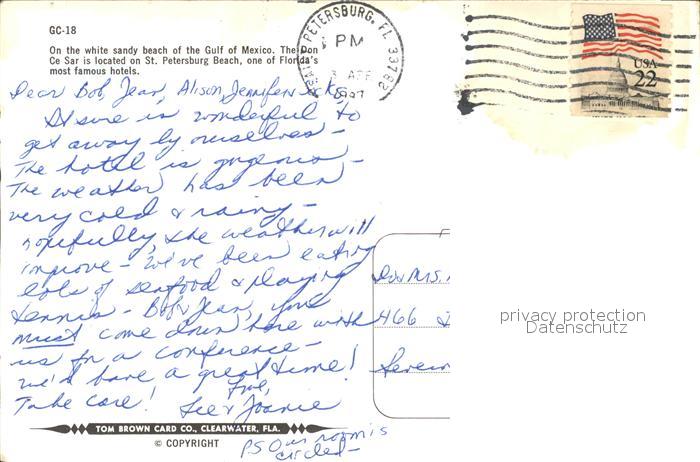 GC-18
On the white sandy beach of the Gulf of Mexico. The Don
Ce Sar is located on St. Petersburg Beach, one of Florida's
most famous hotels.
PETERSBURG, FL 33782
PM
3 APR
USA
22
Dear Bob, Jean, Alison, Jennifer &
It sure is wonderful to
get away by ourselves -
The hotel is gorgeous -
The weather has been
very cold & rainy -
hopefully, the weather will
improve - We've been eating
lots of seafood & playing
tennis - Bob & Jean, you
must come down here with
us for a conference -
we'd have a great time!
Take care! Love,
Lee & Joanie
PS Our room is
circled -
466
privacy protection
Datenschutz
TOM BROWN CARD CO., CLEARWATER, FLA.
© COPYRIGHT